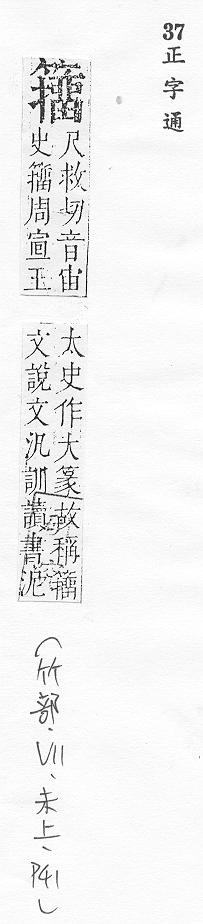 37
正字通
籀
尺救切音宙
史籀周宣王
太史作大篆故稱籀
文說文汎訓讀書泥
（竹部·VII、未上、P41）